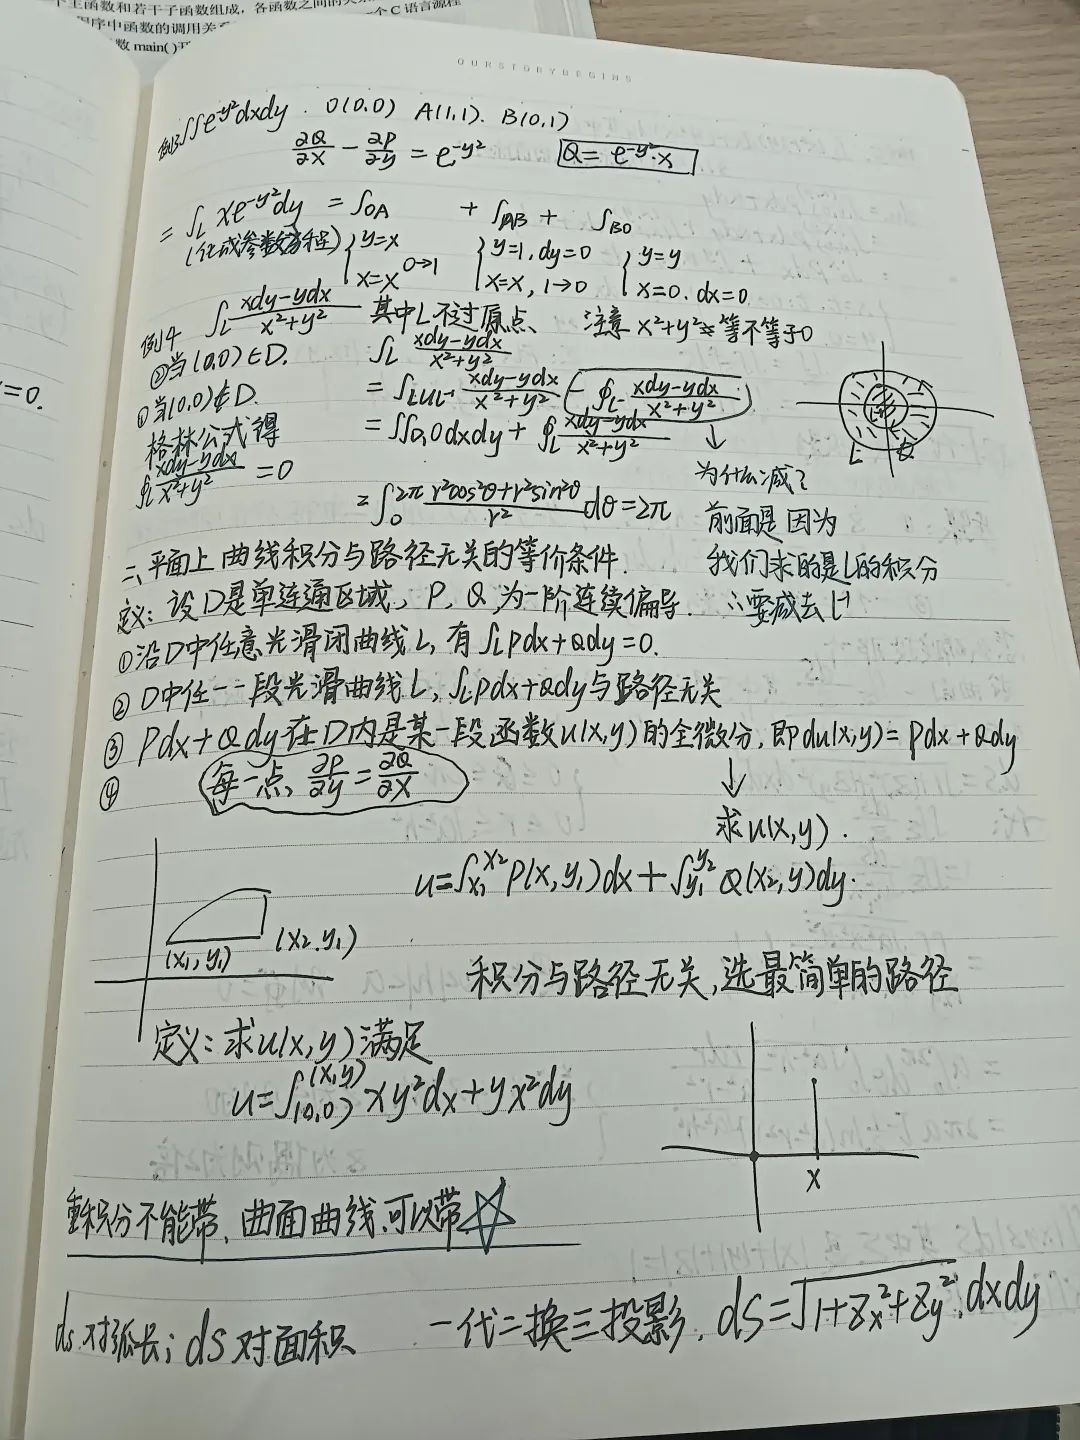 个主函数和若干子函数组成，各函数之间的
一个C语言源程
程序中函数的调用关系
数main()
OURSTORYBEGINS
例3 ∬e^{-y²}dxdy. O(0,0) A(1,1). B(0,1)
∂Q/∂x - ∂P/∂y = e^{-y²} Q = e^{-y²}·x
= ∫_L xe^{-y²}dy = ∫_{OA} + ∫_{AB} + ∫_{BO}
(化成参数方程) { y=x { y=1, dy=0 { y=y
x=x 0→1 x=x, 1→0 x=0. dx=0
例4 ∫_L (xdy-ydx)/(x²+y²) 其中L不过原点、 注意 x²+y² 等不等于0
②当(0,0)∈D. ∫_L (xdy-ydx)/(x²+y²)
①当(0,0)∉D. = ∫_{L∪L⁻} (xdy-ydx)/(x²+y²) - ∮_{L⁻} (xdy-ydx)/(x²+y²)
格林公式得 = ∬_D 0 dxdy + ∮_L (xdy-ydx)/(x²+y²)
∮_L (xdy-ydx)/(x²+y²) = 0 为什么减？
= ∫_0^{2π} (r²cos²θ+r²sin²θ)/r² dθ = 2π 前面是因为
二、平面上曲线积分与路径无关的等价条件. 我们求的是L的积分
定义: 设D是单连通区域, P, Q, 为一阶连续偏导. ∴要减去L⁻
①沿D中任意光滑闭曲线L, 有∫_L Pdx+Qdy=0.
②D中任一一段光滑曲线L, ∫_L Pdx+Qdy与路径无关
③Pdx+Qdy在D内是某一段函数u(x,y)的全微分, 即du(x,y)=Pdx+Qdy
④ 每一点、∂P/∂y = ∂Q/∂x ↓
求u(x,y).
u=∫_{x₁}^{x₂} P(x,y₁)dx+∫_{y₁}^{y₂} Q(x₂,y)dy.
(x₁,y₁) (x₂.y₁)
积分与路径无关, 选最简单的路径
定义: 求u(x,y)满足
u=∫_{(0,0)}^{(x,y)} xy²dx+yx²dy
x
重积分不能带、曲面曲线、可以带☆
ds 对弧长; dS 对面积 一代二换三投影, dS=√(1+Zx²+Zy²).dxdy